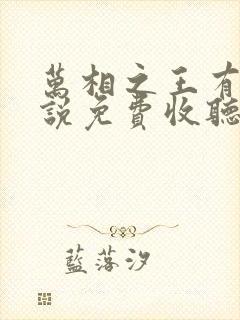 萬相之王有
說免費收聽
藍落汐